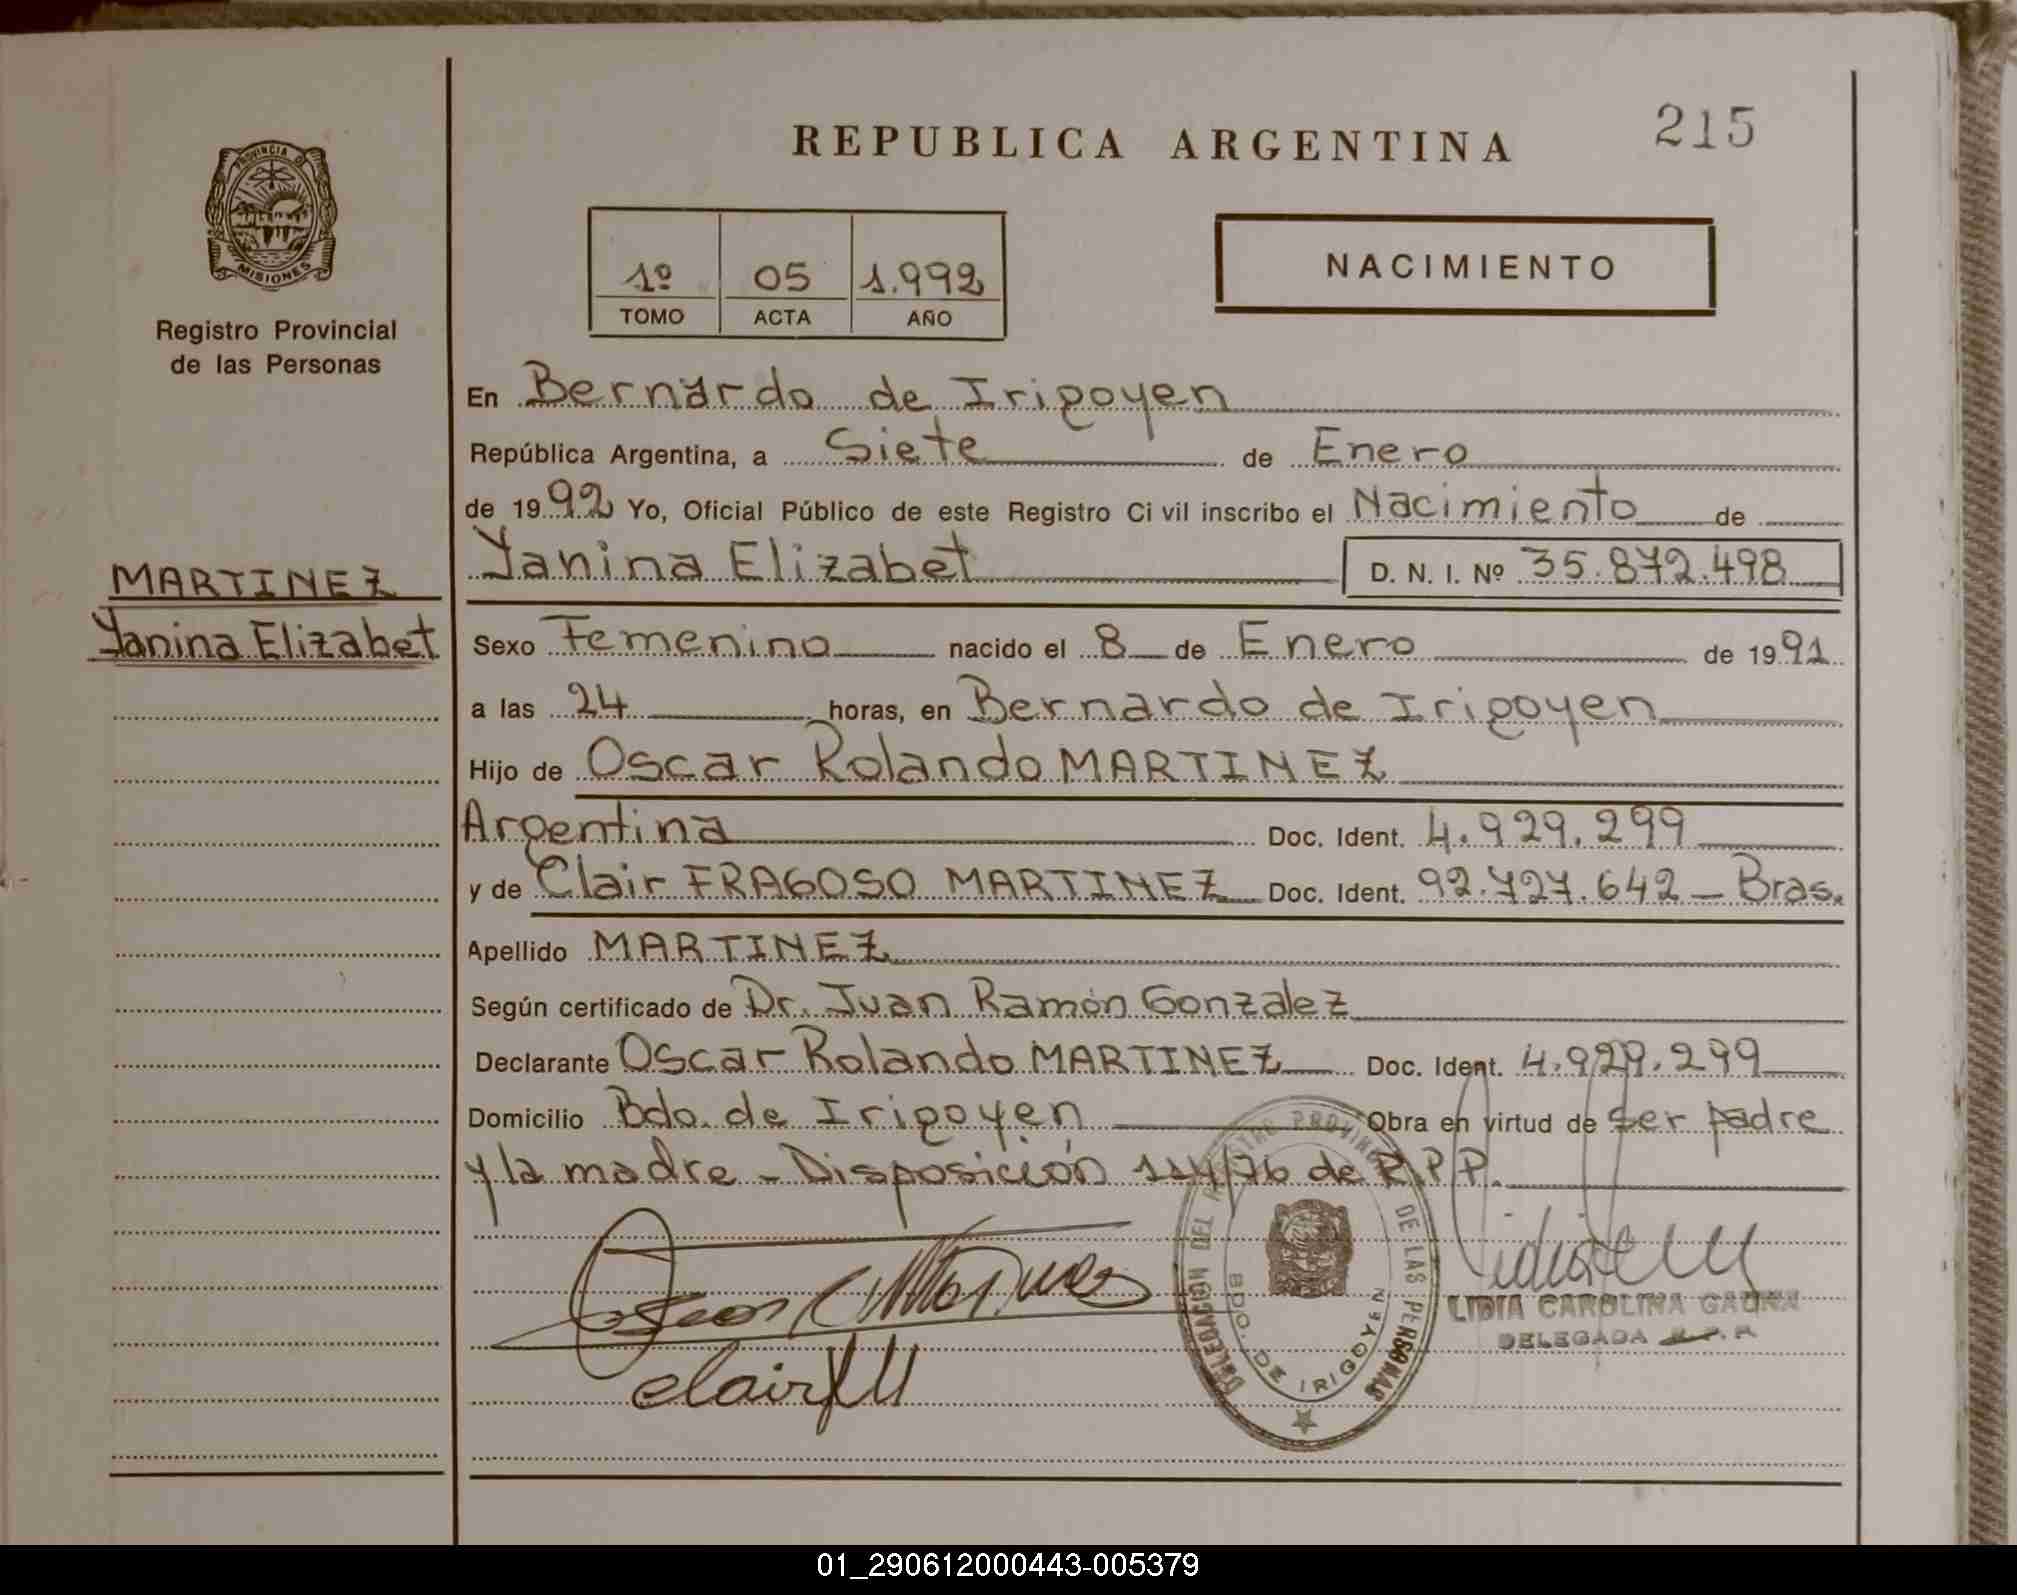 REPUBLICA ARGENTINA
215
PROVINCIA D
MISIONES
Registro Provincial
de las Personas
1º 05 1.992
TOMO ACTA AÑO
NACIMIENTO
En Bernardo de Irigoyen
República Argentina, a Siete de Enero
de 1992 Yo, Oficial Público de este Registro Civil inscribo el Nacimiento de
Yanina Elizabet D. N. I. Nº 35.872.498
MARTINEZ
Yanina Elizabet
Sexo Femenino nacido el 8 de Enero de 1991
a las 24 horas, en Bernardo de Irigoyen
Hijo de Oscar Rolando MARTINEZ
Argentina Doc. Ident. 4.929.299
y de Clair FRAGOSO MARTINEZ Doc. Ident. 92.727.642 - Bras.
Apellido MARTINEZ
Según certificado de Dr. Juan Ramón Gonzalez
Declarante Oscar Rolando MARTINEZ Doc. Ident. 4.929.299
Domicilio Bdo. de Irigoyen Obra en virtud de ser padre
y la madre - Disposición 114/76 de R.P.P.
DELEGACION DEL REGISTRO PROVINCIAL DE LAS PERSONAS
BDO. DE IRIGOYEN
LIDIA CAROLINA GAUNA
DELEGADA R.P.P.
01_290612000443-005379